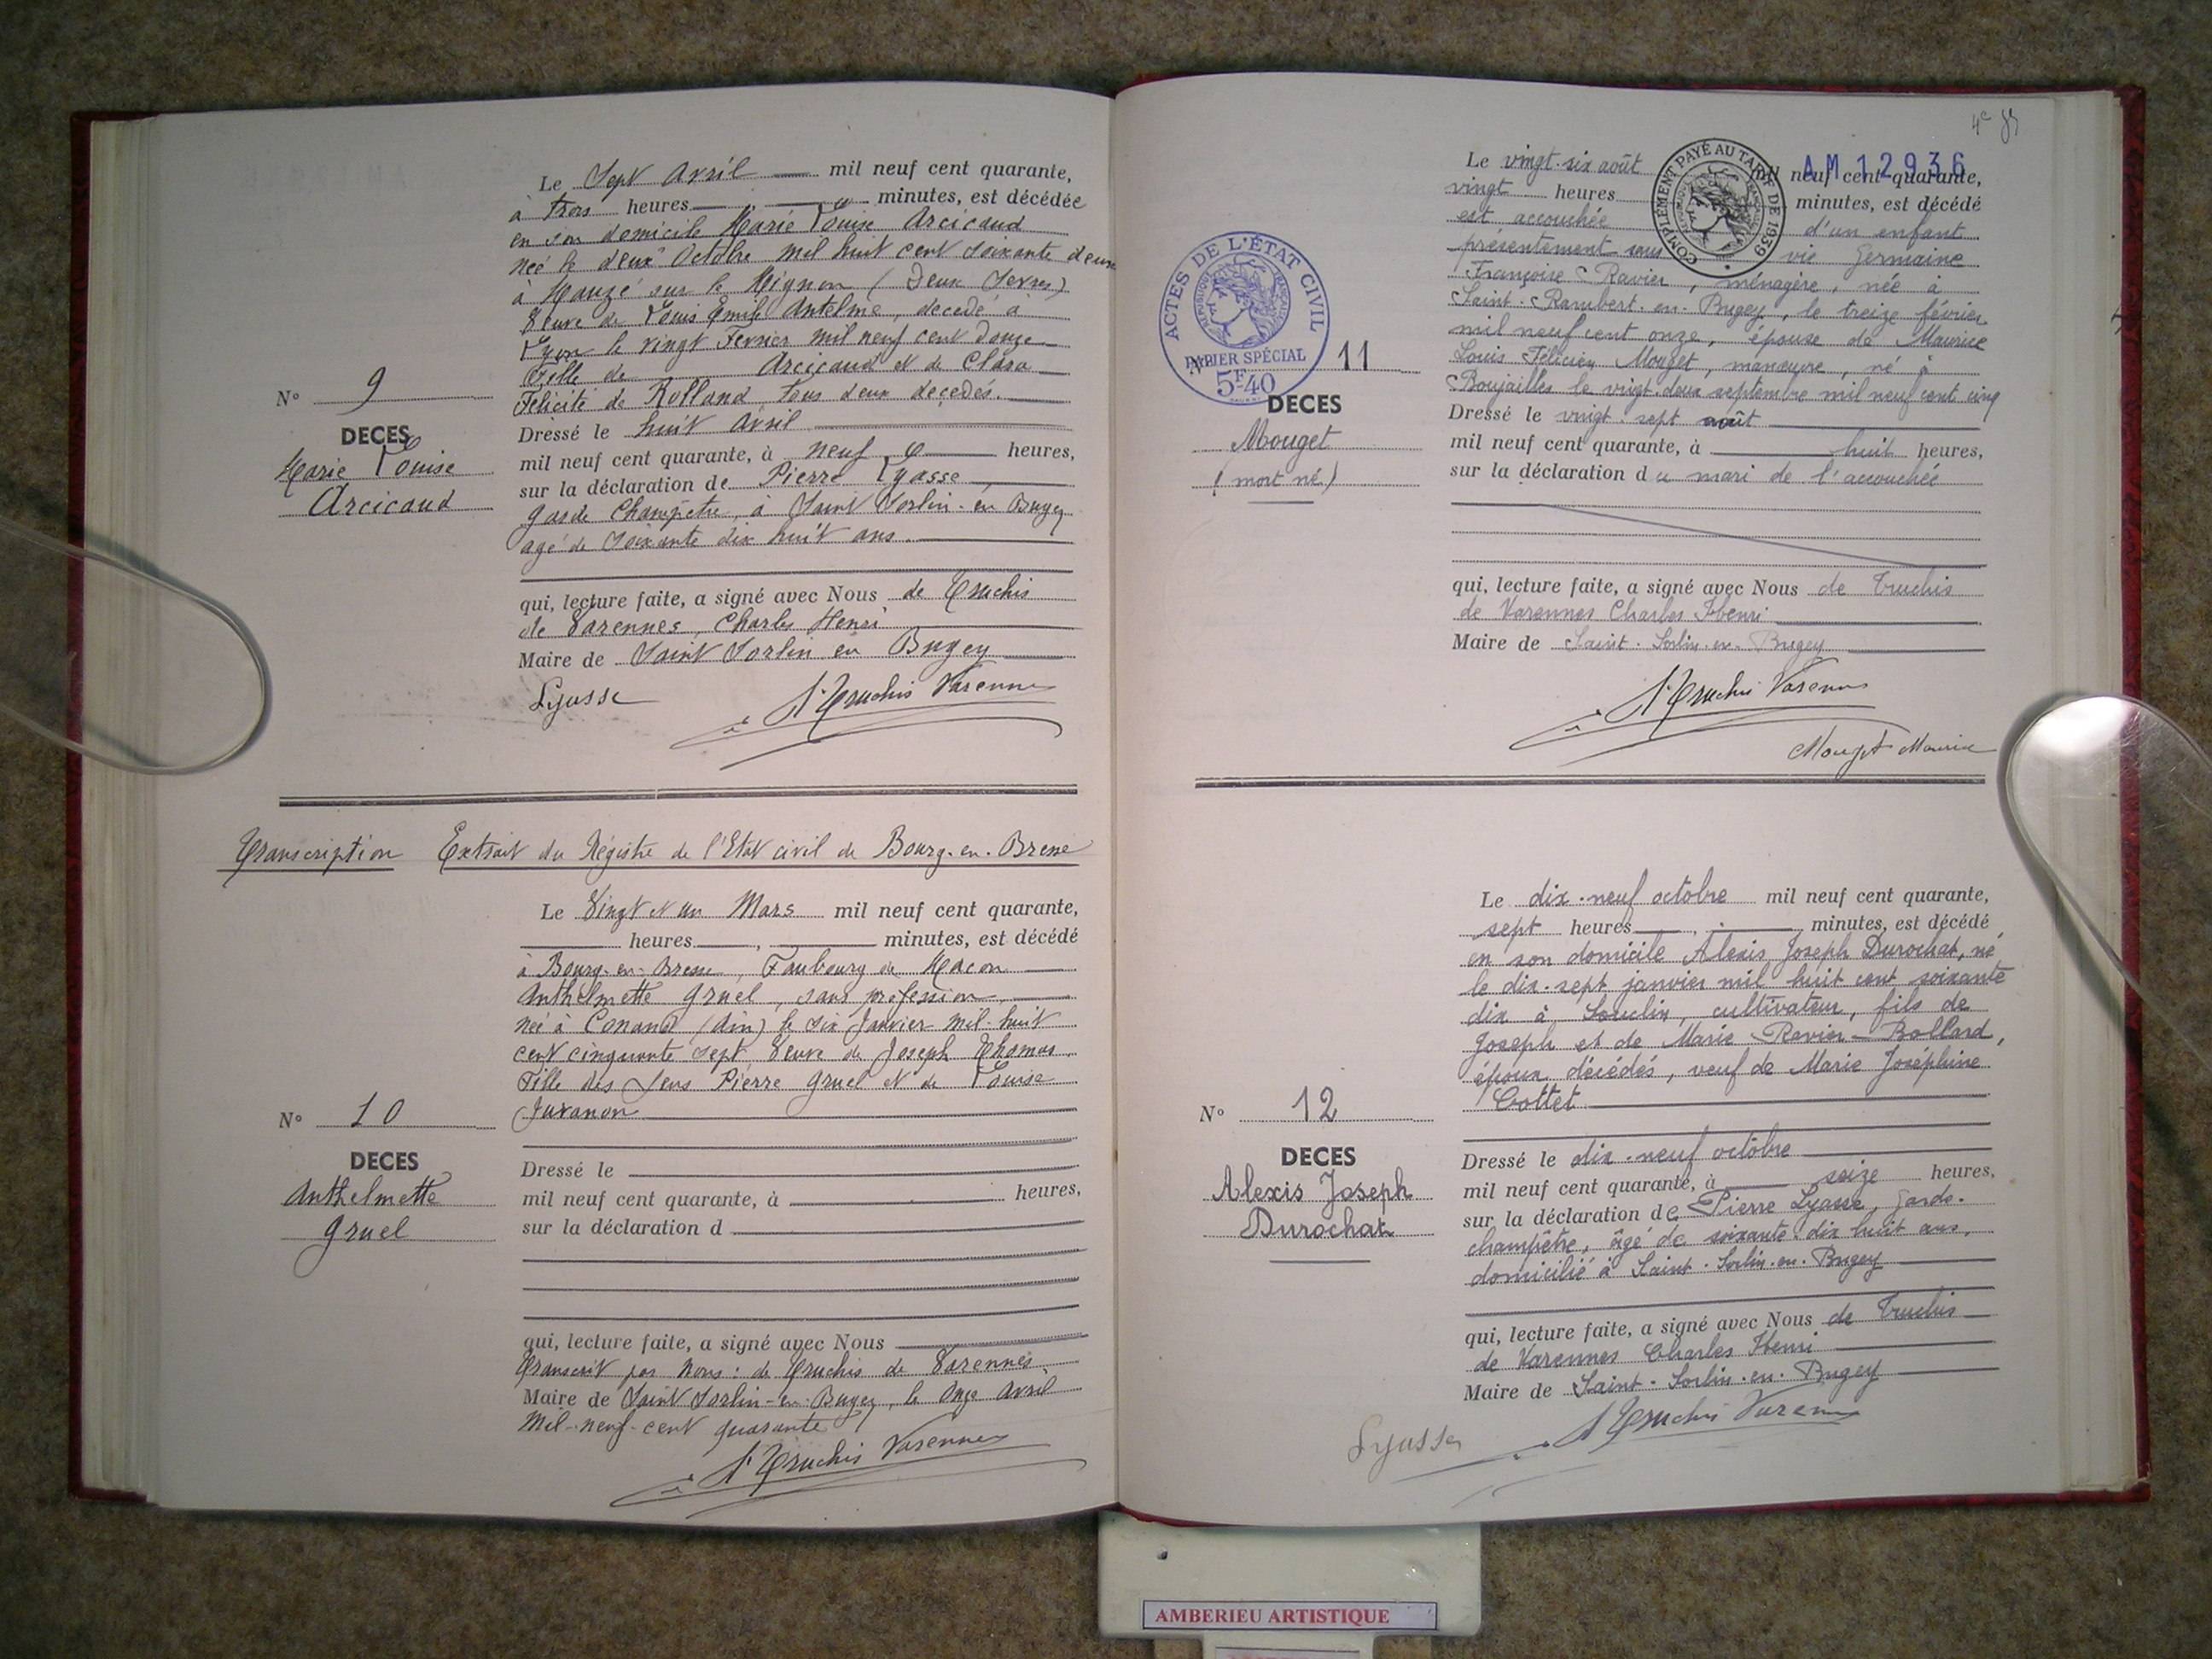 Le Sept Avril mil neuf cent quarante,
à trois heures minutes, est décédée
en son domicile Marie Louise Arcicaud
née le deux Octobre mil huit cent soixante deux
à Mauzé sur le Mignon (Deux Sevres)
Veuve de Louis Emile Antelme, décédé à
Lyon le vingt Fevrier mil neuf cent douze
Fille de Arcicaud et de Clara
Félicité de Rolland tous deux decedés.
N° 9
DECES
Marie Louise
Arcicaud
Dressé le huit Avril
mil neuf cent quarante, à neuf heures,
sur la déclaration de Pierre Lyasse
garde Champêtre, à Saint Sorlin-en Bugey
agé de Soixante dix huit ans.
qui, lecture faite, a signé avec Nous de Truchis
de Varennes, Charles Henri
Maire de Saint Sorlin en Bugey
Lyasse
d. Truchis Varennes
Transcription Extrait du Régistre de l'Etat civil de Bourg-en-Bresse
Le Vingt et un Mars mil neuf cent quarante,
heures minutes, est décédé
à Bourg-en-Bresse, Faubourg de Macon
Anthelmette Gruel, sans profession,
née à Conand (Ain) le six Janvier mil-huit
cent cinquante sept Veuve de Joseph Thomas
Fille des Pierre Gruel et de Louise
Juvanon
N° 10
DECES
Anthelmette
Gruel
Dressé le
mil neuf cent quarante, à heures,
sur la déclaration d
qui, lecture faite, a signé avec Nous
Transcrit par Nous: de Truchis de Varennes
Maire de Saint Sorlin-en-Bugey, le Onze Avril
Mil-neuf-cent quarante
d. Truchis Varennes
4e
AM 12936
COMPLÉMENT PAYÉ AU TARIF DE 1939
Le vingt-six août mil neuf cent quarante,
vingt heures minutes, est décédé
est accouchée d'un enfant
présentement sans vie Germaine
Françoise Ravier, ménagère, née à
Saint-Rambert-en-Bugey, le treize février
mil neuf cent onze, épouse de Maurice
Louis Félicien Mouget, manœuvre, né à
Boujailles le vingt-deux septembre mil neuf cent cinq
ACTES DE L'ÉTAT CIVIL
PAPIER SPÉCIAL
5F40
11
DECES
Mouget
(mort né)
Dressé le vingt-sept août
mil neuf cent quarante, à huit heures,
sur la déclaration du mari de l'accouchée
qui, lecture faite, a signé avec Nous de Truchis
de Varennes Charles Henri
Maire de Saint-Sorlin-en-Bugey
d. Truchis Varennes
Mouget Maurice
Le dix-neuf octobre mil neuf cent quarante,
sept heures minutes, est décédé
en son domicile Alexis Joseph Durochat, né
le dix-sept janvier mil huit cent soixante
dix à Souclin, cultivateur, fils de
Joseph et de Marie Ravier-Bollard,
époux décédés, veuf de Marie Joséphine
Cottet
N° 12
DECES
Alexis Joseph
Durochat
Dressé le dix-neuf octobre
mil neuf cent quarante, à seize heures,
sur la déclaration de Pierre Lyasse, garde-
champêtre, âgé de soixante-dix huit ans,
domicilié à Saint-Sorlin-en-Bugey
qui, lecture faite, a signé avec Nous de Truchis
de Varennes Charles Henri
Maire de Saint-Sorlin-en-Bugey
Lyasse
d. Truchis Varennes
AMBERIEU ARTISTIQUE